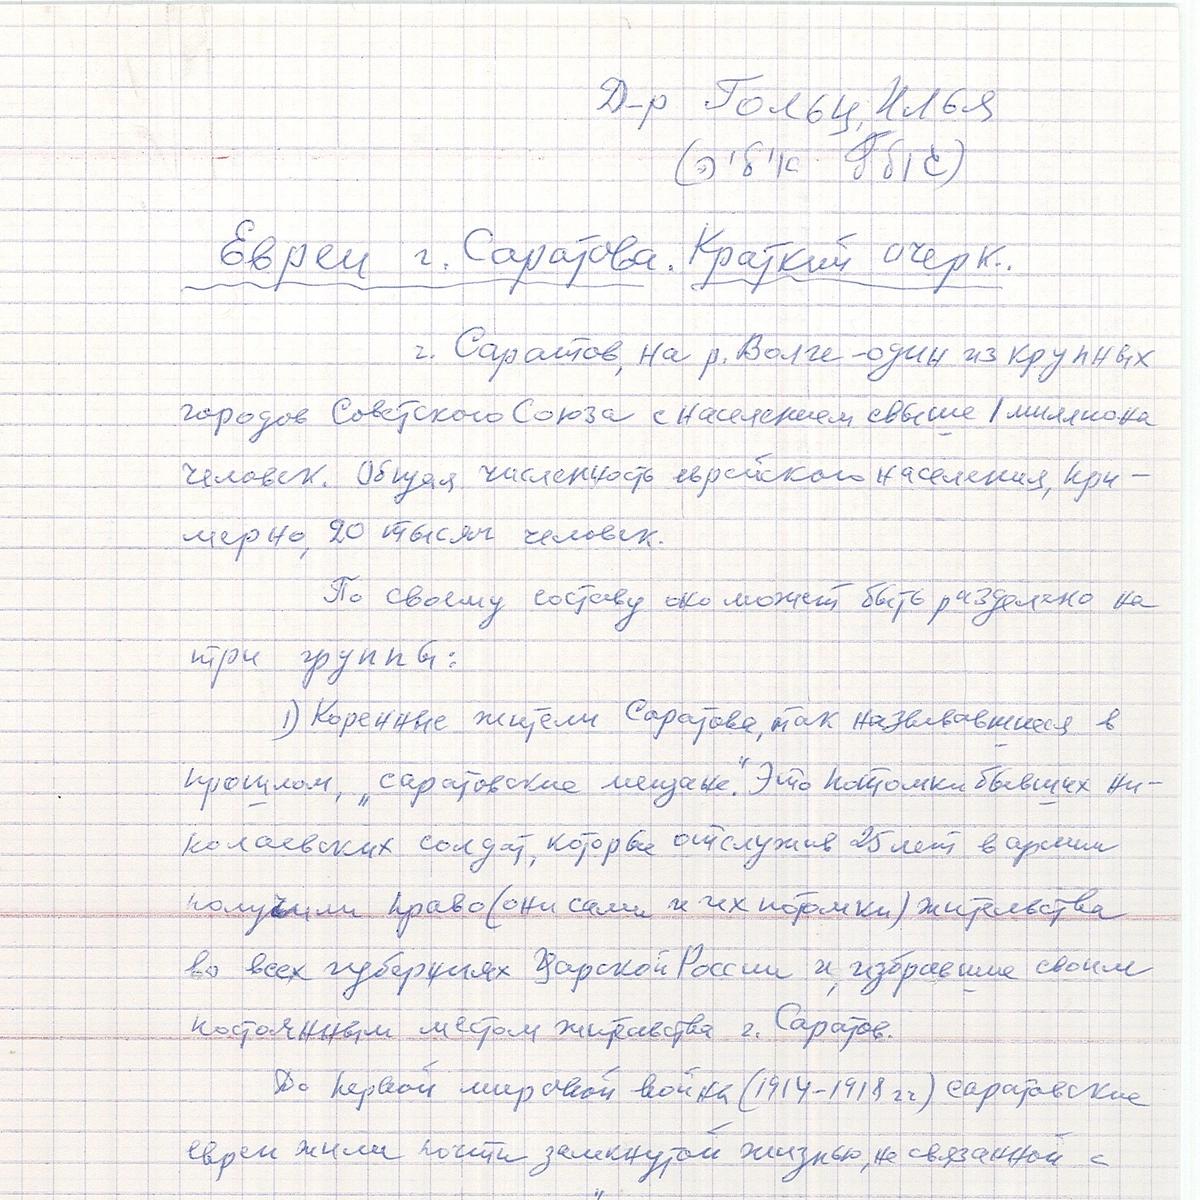 Д-р Гольц, Илья
Евреи г. Саратова. Краткий очерк.
г. Саратов, на р. Волге - один из крупных
городов Советского Союза с населением свыше 1 миллиона
человек. Общая численность еврейского населения, при-
мерно, 20 тысяч человек.
По своему составу оно может быть разделено на
три группы:
1) Коренные жители Саратова, так называвшиеся в
прошлом, „саратовские мещане". Это потомки бывших ни-
колаевских солдат, которые отслужив 25 лет в армии
получили право (они сами и их потомки) жительства
во всех губерниях Царской России и, избравшие своим
постоянным местом жительства г. Саратов.
До первой мировой война (1914-1918 гг) саратовские
евреи жили почти замкнутой жизнью, не связанной с